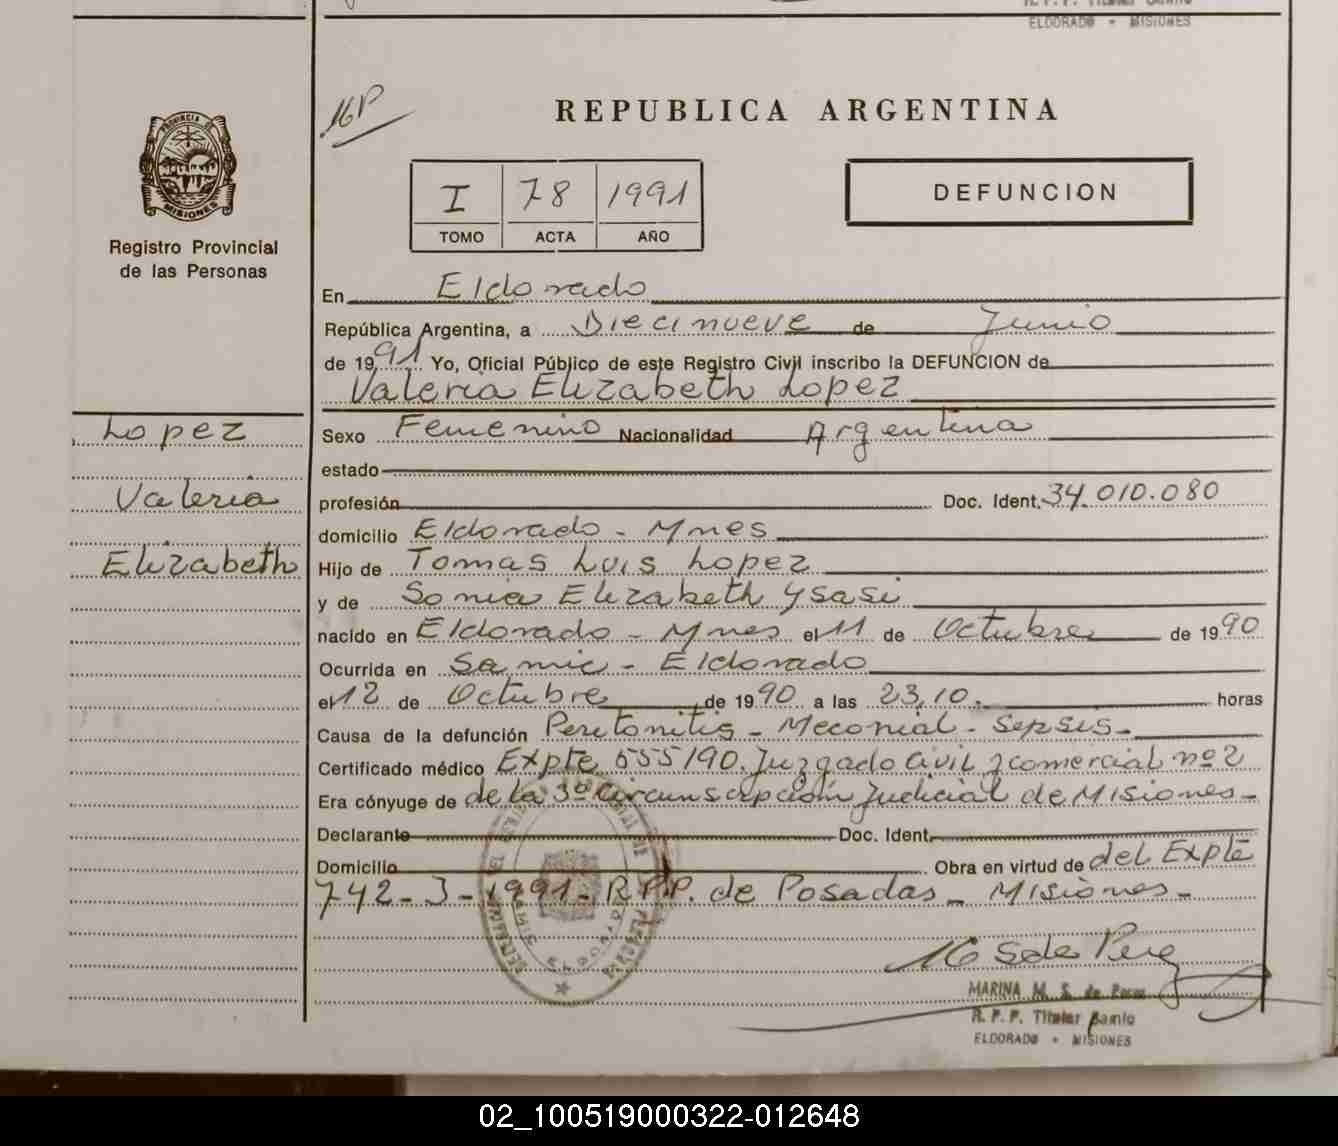 ELDORADO - MISIONES
PROVINCIA D
MISIONES
Registro Provincial
de las Personas
REPUBLICA ARGENTINA
I 78 1991
TOMO ACTA AÑO
DEFUNCION
En Eldorado
República Argentina, a Diecinueve de Junio
de 1991 Yo, Oficial Público de este Registro Civil inscribo la DEFUNCION de
Valeria Elizabeth Lopez
Lopez
Valeria
Elizabeth
Sexo Femenino Nacionalidad Argentina
estado
profesión Doc. Ident. 34.010.080
domicilio Eldorado - Mnes
Hijo de Tomas Luis Lopez
y de Sonia Elizabeth Ysasi
nacido en Eldorado - Mnes el 11 de Octubre de 1990
Ocurrida en Samic - Eldorado
el 12 de Octubre de 1990 a las 23,10. horas
Causa de la defunción Peritonitis - Meconial - Sepsis.
Certificado médico Expte 555/90. Juzgado Civil y comercial nº 2
Era cónyuge de de la 3º Circunscripción Judicial de Misiones -
Declarante Doc. Ident.
Domicilio Obra en virtud de del Expte
742 - J - 1991 - R.P.P. de Posadas - Misiones -
MARINA M. S. de
R. P. P. Titular
ELDORADO - MISIONES
02_100519000322-012648